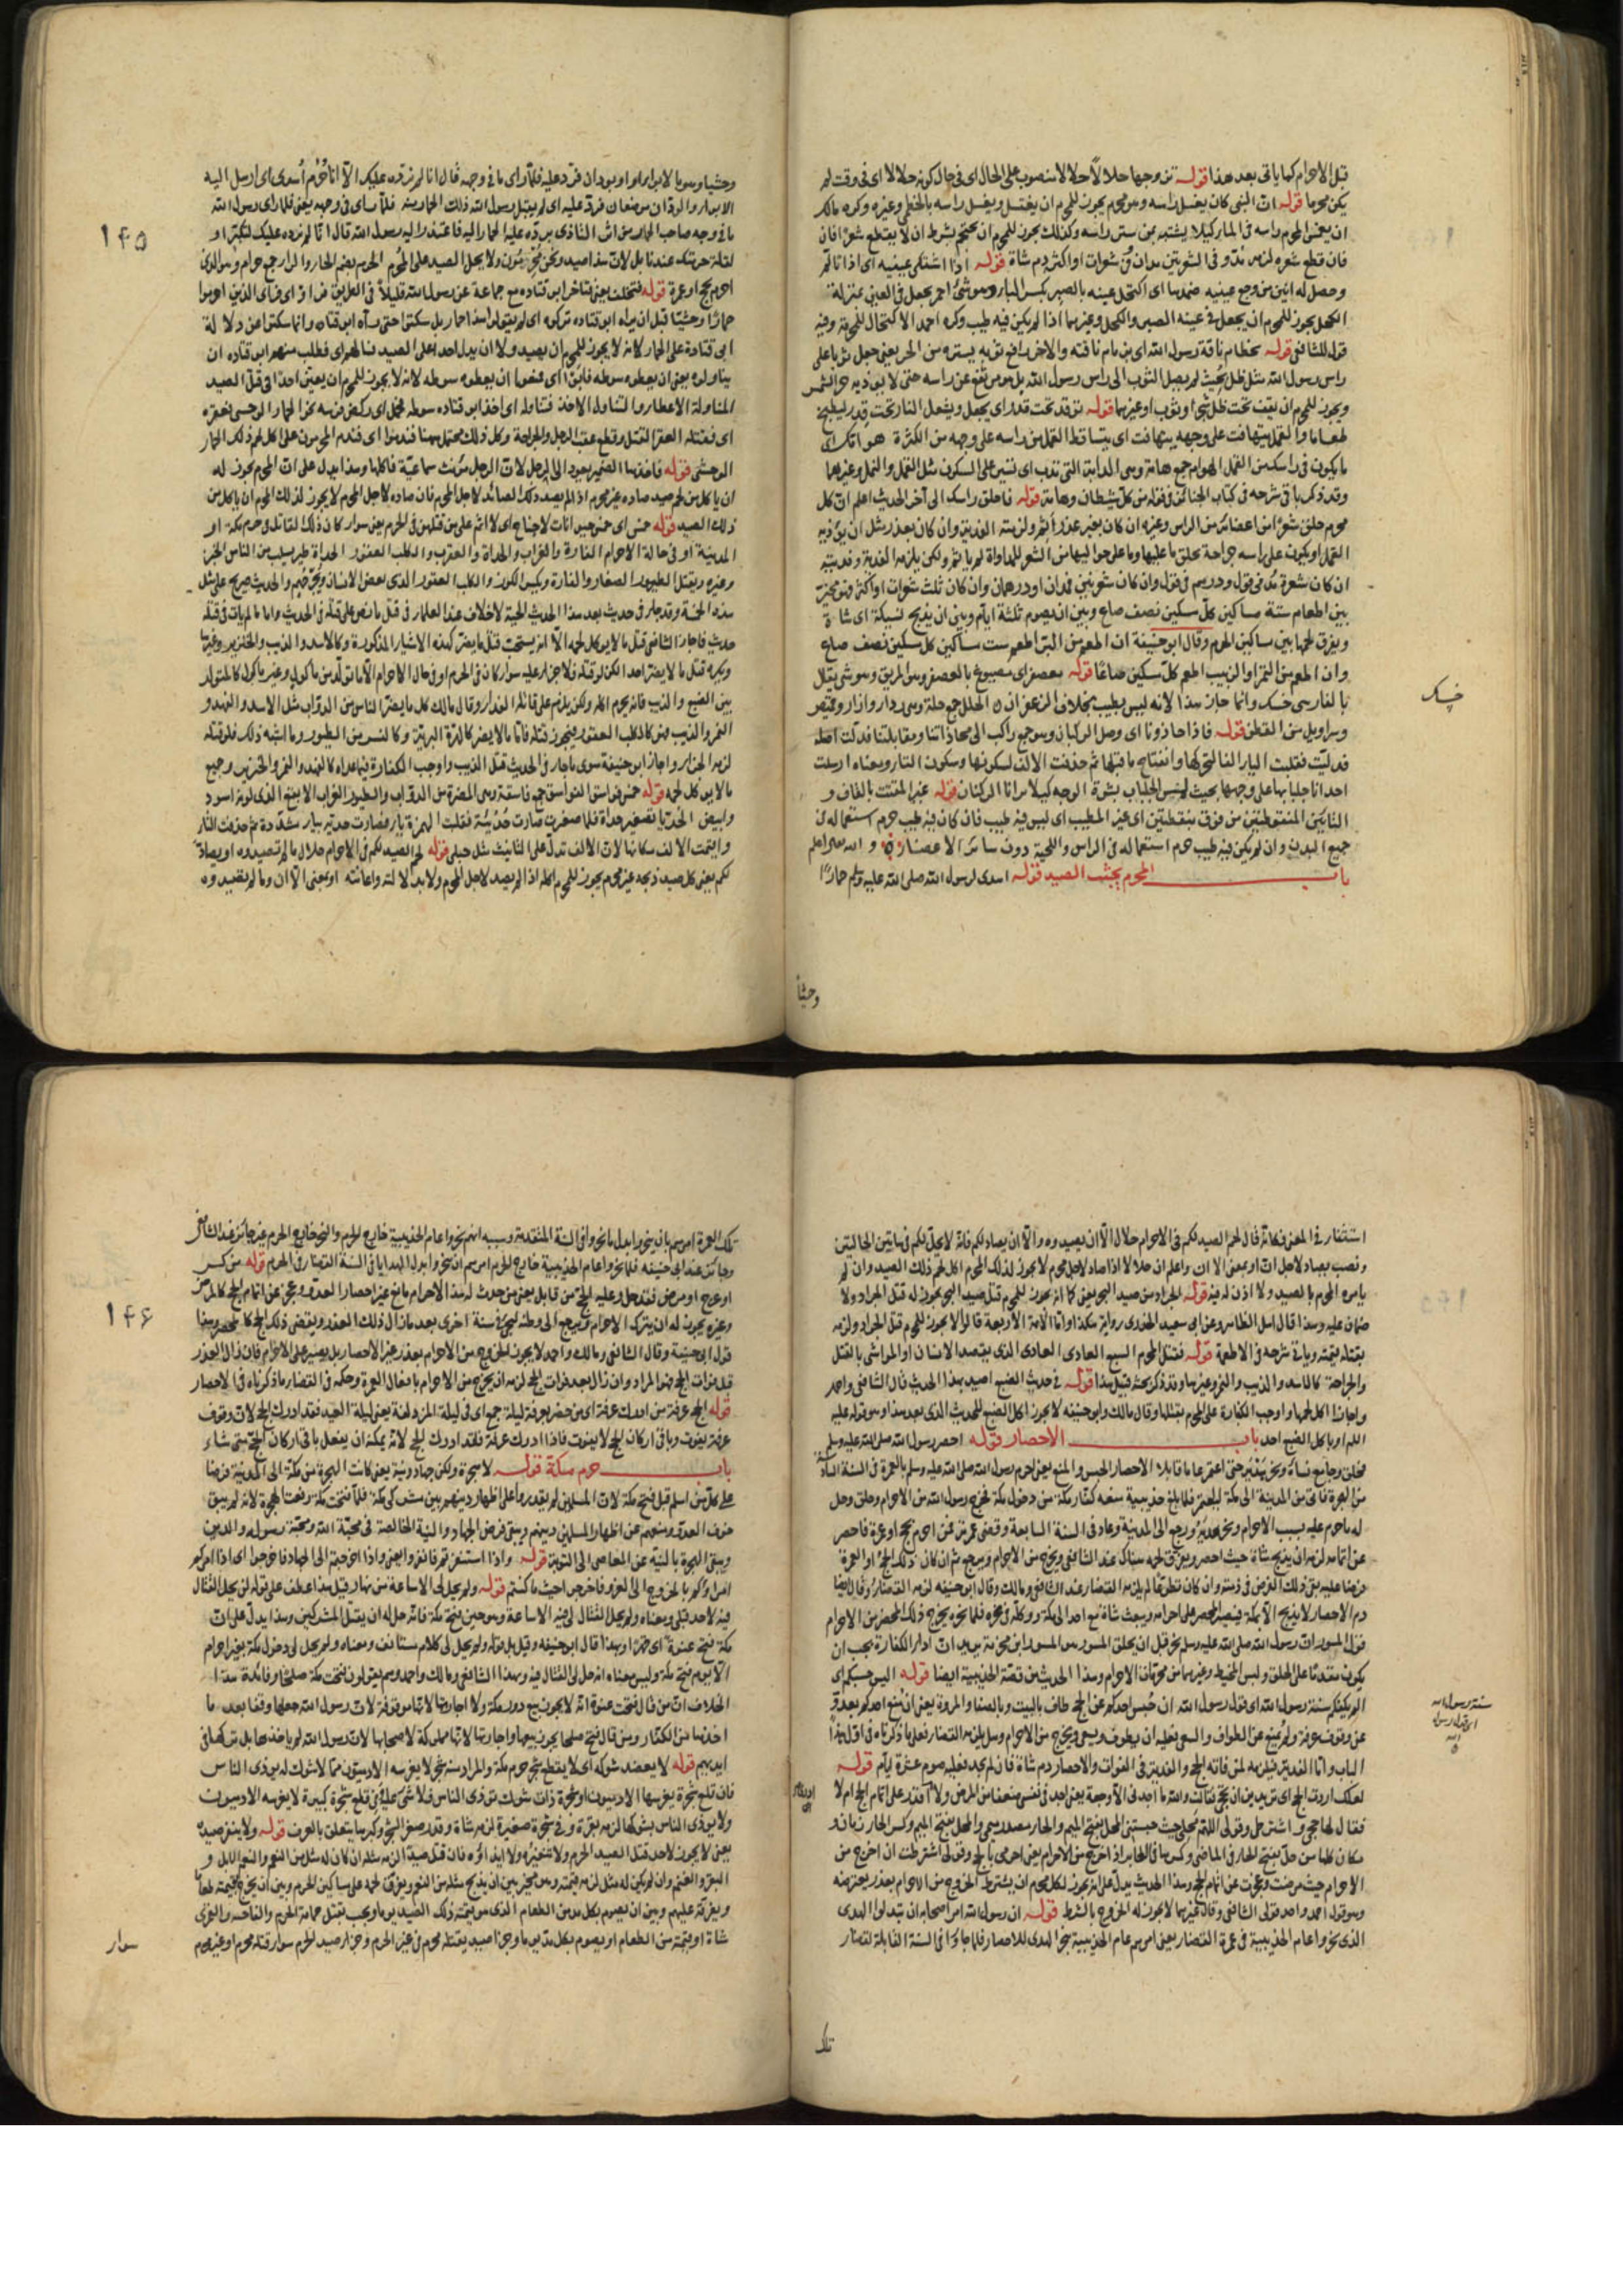 قبل الاحرام كما ياتى بعد هذا قوله تزوجها حلالا حلالا منصوب على الحال اى فى حال كونه حلالا اى فى وقت لم
يكن محرما قوله ان النبى كان يغسل راسه وهو محرم يجوز للمحرم ان يغتسل ويغسل راسه بالخطمى وغيره وكره مالك
ان يغمس المحرم راسه فى الماء كيلا يشتبه بمن ستر راسه وكذلك يجوز للمحرم ان يحتجم بشرط ان لا يقطع شعرا فان
فان قطع شعره لزمه مد وفى الشعرتين مدان وفى شعرات او اكثر دم شاة قوله اذا اشتكى عينيه اى اذا تالم
وحصل له انين من وجع عينيه ضمدهما اى اكتحل عينه بالصبر بكسر الباء وهو شئ احمر يجعل فى العين بمنزلة
الكحل يجوز للمحرم ان يجعل فى عينه الصبر والكحل وغيرهما اذا لم يكن فيه طيب وكره احمد الاكتحال للمحرم وفيه
قول للشافعى قوله بخطام ناقة رسول الله اى بزمام ناقته والاخر رافع ثوبه يستره من الحر يعنى جعل ثوبا على
راس رسول الله مثل ظل بحيث لم يصل الثوب الى راس رسول الله بل هو مرتفع عن راسه حتى لا يؤذيه حر الشمس
ويجوز للمحرم ان يقف تحت ظل شئ او ثوب او غيرهما قوله توقد تحت قدر اى يجعل ويشعل النار تحت قدر ليطبخ
طعاما والقمل يتهافت على وجهه يتهافت اى يتساقط القمل من راسه على وجهه من الكثرة هوامك اى
ما يكون فى راسك من القمل الهوام جمع هامة وهى الدابة التى تدب اى تسير على السكون مثل القمل والنمل وغيرهما
وقد ذكر باقى شرحه فى كتاب الجنائز فى قوله من كل شيطان وهامة قوله فاحلق راسك الى آخر الحديث اعلم ان كل
محرم حلق شعرا من اعضائه من الراس وغيره ان كان بغير عذر اثم ولزمته الفدية وان كان بعذر مثل ان يؤذيه
القمل او يكون على راسه جراحة
ان كان شعرة مد فى قول ودرهم فى قول وان كان شعرتين فمدان او درهمان وان كان ثلث شعرات او اكثر فهو مخير
بين اطعام ستة مساكين كل مسكين نصف صاع وبين ان يصوم ثلثة ايام وبين ان يذبح نسيكة اى شاة
ويفرق لحمها بين مساكين الحرم وقال ابو حنيفة ان اطعم من البر اطعم ست مساكين كل مسكين نصف صاع
وان اطعم من التمر او الزبيب اطعم كل مسكين صاعا قوله معصفر اى مصبوغ بالعصفر وهو شئ يقال
بالفارسى خسك وانما جاز هذا لانه ليس بطيب بخلاف الزعفران الحلل جمع حلة وهى رداء وازار وقميص
وسراويل من القطن قوله فاذا حاذونا اى وصل الركبان وهو جمع راكب الى محاذاتنا ومقابلتنا
فدليت فقلبت الياء الفا لتحركها وانفتاح ما قبلها ثم حذفت الالف لسكونها وسكون التاء ومعناه ارسلت
احدانا جلبابها على وجهها بحيث لم يمس الجلباب بشرة الوجه كيلا يرانا الركبان قوله غير المقتت بالقاف و
التائين المنقوطتين من فوق بنقطتين اى غير المطيب اى ليس فيه طيب فان كان فيه طيب حرم استعماله فى
جميع البدن وان لم يكن فيه طيب حرم استعماله فى الراس واللحية دون سائر الاعضاء والله اعلم
باب المحرم يجتنب الصيد قوله اهدى لرسول الله صلى الله عليه وسلم حمارا
وحشيا
خسك
١٤٥
وحشيا وهو بالابواء او بودان فرد عليه فلما راى ما فى وجهه قال انا لم نرده عليك الا انا حرم اهدى اى ارسل اليه
الابواء والودان موضعان فرد عليه اى لم يقبل رسول الله ذلك الحمار منه فلما راى فى وجهه يعنى فلما راى رسول الله
ما فى وجه صاحب الحمار من اثر التاذى برده عليه الحمار اليه فاعتذر اليه رسول الله قال انا لم نرده عليك لتكبر او
لقلة حرمتك عندنا بل لان هذا صيد ونحن محرمون ولا يحل الصيد على المحرم الحرم بضم الحاء والراء جمع حرام وهو الذى
احرم بحج او عمرة قوله فتخلف يعنى تاخر ابو قتادة مع جماعة عن رسول الله قليلا فى الطريق
حمارا وحشيا قبل ان يراه ابو قتادة تركوه اى لم يقولوا هذا حمار بل سكتوا حتى رآه ابو قتادة وانما سكتوا عن دلالة
ابى قتادة على الحمار لانه لا يجوز للمحرم ان يصيد ولا ان يدل احدا على الصيد فسالهم اى فطلب منهم ابو قتادة ان
يناولوه يعنى ان يعطوه سوطه فابوا اى فمنعوا ان يعطوه سوطه لانه لا يجوز للمحرم ان يعين احدا فى قتل الصيد
المناولة الاعطاء والتناول الاخذ فتناوله اى اخذ ابو قتادة سوطه فحمل اى ركض فرسه نحو الحمار الوحشى فعقره
اى فقتله العقر القتل وقطع عقب الرجل والجراحة وكل ذلك محتمل ههنا فندموا اى فندم المحرمون على اكل لحم ذلك الحمار
الوحشى قوله فاخذها الضمير يعود الى الرجل لان الرجل مؤنث سماعية فاكلها وهذا يدل على ان المحرم يجوز له
ان ياكل من لحم صيد صاده غير محرم اذا لم يصد ذلك الصائد لاجل المحرم فان صاده لاجل المحرم لا يجوز لذلك المحرم ان ياكل من
ذلك الصيد قوله خمس اى خمس حيوانات لا جناح اى لا اثم على من قتلهن فى الحرم يعنى سواء كان ذلك القاتل فى حرم مكة او
المدينة او فى حالة الاحرام الفارة والغراب والحداة والعقرب والكلب العقور الحداة طير يسلب من الناس الخبز
وغيره ويقتل الطيور الصغار والفارة وبكس الكوز والكلب العقور الذى يعض الانسان
هذه الخمسة وقد جاء فى حديث بعد هذا الحديث الحية لا خلاف عند العلماء فى قتل ما نص على قتله فى الحديث واما ما لم يات فى قتله
حديث فاجاز الشافعى قتل ما لا يؤكل لحمه
بين الضبع والذئب فانه يحرم اكله ولكن يلزم على قاتله الفداء وقال مالك كل ما يضر الناس من الدواب مثل الاسد والفهد و
النمر والذئب فهو كالكلب العقور فيجوز قتله فاما ما لا يضر كالهرة البرية وكالنسر من الطيور وما اشبه ذلك فلو قتله
لزمه الجزاء واجاز ابو حنيفة سوى ما جاء فى الحديث قتل الذئب واوجب الكفارة فيما عداه كالفهد والنمر والخنزير وجميع
ما لا يؤكل لحمه قوله خمس فواسق الفواسق جمع فاسقة وهى المضرة من الدواب والطيور الغراب الابقع الذى لونه اسود
وابيض الحديا تصغير حداة فلما صغرت صارت حديئة فقلبت الهمزة ياء فصارت حدية بياء مشددة ثم حذفت التاء
واقيمت الالف مكانها لان الالف تدل على التانيث مثل حبلى قوله لحم الصيد لكم فى الاحرام حلال ما لم تصيدوه او يصاد
لكم يعنى كل صيد ذبحه غير محرم يجوز للمحرم اكله اذا لم يصد لاجل المحرم ولا بدلالته واعانته او بمعنى الا ان وما لم تصيدوه
استثناء فى المعنى فكانه قال لحم الصيد لكم فى الاحرام حلال الا ان تصيدوه والا ان يصاد لكم فانه لا يحل لكم فى هاتين الحالتين
ونصب يصاد لاجل ان او بمعنى الا ان واعلم ان حلالا اذا صاد لاجل محرم لا يجوز لذلك المحرم اكل لحم ذلك الصيد وان لم
يامره المحرم بالصيد ولا اذن له فيه قوله الجراد من صيد البحر يعنى كما انه يجوز للمحرم قتل صيد البحر يجوز له قتل الجراد ولا
ضمان عليه وهذا قال اهل الظاهر وعن ابى سعيد الخدرى رواية هكذا واما الائمة الاربعة قالوا لا يجوز للمحرم قتل الجراد ولزمه
بقتله قيمته وياتى شرحه فى الاطعمة قوله فقتل المحرم السبع العادى العادى الذى يقصد الانسان او المواشى بالقتل
والجراحة كالاسد والذئب والنمر وغيرها وقد ذكر بحثه قبيل هذا قوله فى حديث الضبع اصيد بهذا الحديث قال الشافعى واحمد
واجازا اكل لحمها واوجب الكفارة على المحرم بقتلها وقال مالك وابو حنيفة لا يجوز اكل الضبع للحديث الذى بعد هذا وهو قوله عليه
السلام او ياكل الضبع احد باب الاحصار قوله احصر رسول الله صلى الله عليه وسلم
فحلق وجامع نساءه ونحر هديه حتى اعتمر عاما قابلا الاحصار الحبس والمنع يعنى احرم رسول الله صلى الله عليه وسلم بالعمرة فى السنة السادسة
من الهجرة فاتى من المدينة الى مكة ليعتمر فلما بلغ حديبية منعه كفار مكة من دخول مكة فخرج رسول الله من الاحرام وحلق وحل
له ما حرم عليه بسبب الاحرام ونحر هديه ورجع الى المدينة وعاد فى السنة السابعة وقضى عمرته فمن احرم بحج او عمرة فاحصر
عن اتمامه لزمه ان يذبح شاة حيث احصر ويفرق لحمه هناك عند الشافعى ويخرج من الاحرام ويرجع ثم ان كان ذلك الحج او العمرة
فرضا عليه بقى ذلك الفرض فى ذمته وان كان تطوعا لم يلزمه القضاء عند الشافعى ومالك وقال ابو حنيفة لزمه القضاء وقال ايضا
دم الاحصار لا يذبح الا بمكة فيصبر المحصر على احرامه ويبعث شاة مع احد الى مكة ووكله فى نحره فلما نحره يخرج ذلك المحصر من الاحرام
قول المسور ان رسول الله صلى الله عليه وسلم نحر قبل ان يحلق المسور هو المسور بن مخرمة يريد ان اداء الكفارة يجب ان
يكون مقدما على الحلق ولبس المخيط وغيرهما من محرمات الاحرام وهذا الحديث من قصة الحديبية ايضا قوله اليس حسبكم اى
الم يكفكم سنة رسول الله اى قول رسول الله ان حبس احدكم عن الحج طاف بالبيت وبالصفا والمروة يعنى ان منع احدكم بعدو
عن وقوف عرفة ولم يمنع عن الطواف والسعى فعليه ان يطوف ويسعى ويخرج من الاحرام وهل يلزمه القضاء فعلى ما ذكرناه فى اول هذا
الباب واما الفدية فيلزمه لمن فاته الحج والفدية فى الفوات والاحصار دم شاة فان لم يجد فعليه صوم عشرة ايام قوله
لعلك اردت الحج اى تريدين ان تحجى فقالت والله ما اجدنى الا وجعة يعنى اجد فى نفسى ضعفا من المرض ولا اقدر على اتمام الحج ام لا
فقال لها حجى واشترطى وقولى اللهم محلى حيث حبستنى المحل بفتح الميم والحاء مصدر ميمى والمحل بفتح الميم وكسر الحاء زمان و
مكان كلها من حل بفتح الحاء فى الماضى وكسرها فى الغابر اذا خرج من الاحرام يعنى احرمى بالحج وقولى اشترطت ان اخرج من
الاحرام حيث مرضت وعجزت عن اتمام الحج وهذا الحديث يدل على انه يجوز لكل محرم ان يشترط الخروج من الاحرام بعذر يعترضه
وهو قول احمد واحد قولى الشافعى وقال غيرهما لا يجوز له الخروج بالشرط قوله ان رسول الله امر اصحابه ان يبدلوا الهدى
الذى نحروا عام الحديبية فى عمرة القضاء يعنى امرهم عام الحديبية بنحر الهدى للاحصار فلما جاؤا فى السنة القابلة لقضاء
تلك
سنة رسول الله
اى قول رسول
الله
١٤٦
تلك العمرة امرهم بان ينحروا بدل ما نحروا فى السنة المتقدمة وسببه انهم نحروا عام الحديبية خارج الحرم والنحر خارج الحرم غير جائز عند
قوله من كسر
او عرج او مرض فقد حل وعليه الحج من قابل يعنى من حدث له بعد الاحرام مانع غير احصار العدو وعجز عن اتمام الحج كالمرض
وغيره يجوز له ان يترك الاحرام ويرجع الى وطنه ليحج فى سنة اخرى بعد ما زال ذلك العذر ويقضى ذلك الحج
قول ابى حنيفة وقال الشافعى ومالك واحمد لا يجوز الخروج من الاحرام بعذر غير الاحصار بل يصبر على الاحرام فان زال العذر
قبل فوات الحج فهو المراد وان زال بعد فوات الحج لزمه ان يخرج من الاحرام بافعال العمرة وحكمه فى القضاء ما ذكرناه فى الاحصار
قوله الحج عرفة من ادرك عرفة اى من حضر بعرفة ليلة جمع اى فى ليلة المزدلفة يعنى ليلة العيد فقد ادرك الحج لان وقوف
عرفة يفوت وباقى اركان الحج لا يفوت فاذا ادرك عرفة فقد ادرك الحج لانه يمكنه ان يفعل باقى اركان الحج متى شاء
باب حرم مكة قوله لا هجرة ولكن جهاد ونية يعنى كانت الهجرة من مكة الى المدينة فرضا
على كل من اسلم قبل فتح مكة لان المسلمين لم يقدروا على اظهار دينهم بين مشركى مكة فلما فتحت مكة رفعت الهجرة لانه لم يبق
خوف العدو ومنعهم عن اظهار المسلمين دينهم وبقى فرض الجهاد والنية الخالصة فى محبة الله ومحبة رسوله والدين
وبقى الهجرة بالنية عن المعاصى الى التوبة قوله واذا استنفرتم فانفروا يعنى واذا اخرجتم الى الجهاد فاخرجوا اى اذا امركم
امراؤكم بالخروج الى الغزو فاخرجوا حيث ما كنتم قوله ولم يحل لى الا ساعة من نهار قيل هذا عطف على قوله لن يحل القتال
فيه لاحد قبلى ومعناه ولم يحل القتال لى فيه الا ساعة وهو حين فتح مكة فانه حل له ان يقتل المشركين وهذا يدل على ان
مكة فتح عنوة اى قهرا وبهذا قال ابو حنيفة وقيل بل قوله ولم يحل لى كلام مستانف ومعناه ولم يحل لى دخول مكة بغير احرام
الا يوم فتح مكة وليس معناه انه حل لى القتال فيه وبهذا الشافعى ومالك واحمد وهم يقولون فتحت مكة صلحا وفائدة هذا
الخلاف ان من قال فتحت عنوة انه لا يجوز بيع دور مكة ولا اجارتها لانها موقوفة لان رسول الله جعلها وقفا بعد ما
اخذها من الكفار ومن قال فتح صلحا يجوز بيعها واجارتها لانها مملوكة لاصحابها لان رسول الله لم ياخذها بل تركها فى
ايديهم قوله لا يعضد شوكه اى لا يقطع شجر حرم مكة والمراد منه شجر لا يغرسه الادميون مما لا شوك له يؤذى الناس
فان قلع شجرة يغرسها الادميون او شجرة ذات شوك تؤذى الناس فلا شئ عليه
ولا يؤذى الناس بشوكها لزمه بقرة وفى شجرة صغيرة لزمه شاة وقدر صغر الشجر وكبرها يتعلق بالعرف قوله ولا ينفر صيده
يعنى لا يجوز لاحد قتل الصيد الحرم ولا تنفيره ولا ايذاؤه فان قتل صيدا لزمه مثله ان كان له مثل من النعم والنعم الابل و
البقر والغنم وان لم يكن له مثل لزمه قيمته وهو مخير بين ان يذبح مثله من النعم ويفرق لحمه على مساكين الحرم وبين ان يخرج بقيمته طعاما
ويفرقه عليهم وبين ان يصوم بكل مد من الطعام الذى هو قيمة ذلك الصيد يوما ويجب بقتل حمامة الحرم
شاة او قيمته من الطعام او يصوم بكل مد يوما وجزاء صيد يقتله محرم فى غير الحرم وجزاء صيد الحرم سواء قتله محرم او غير محرم
سواء